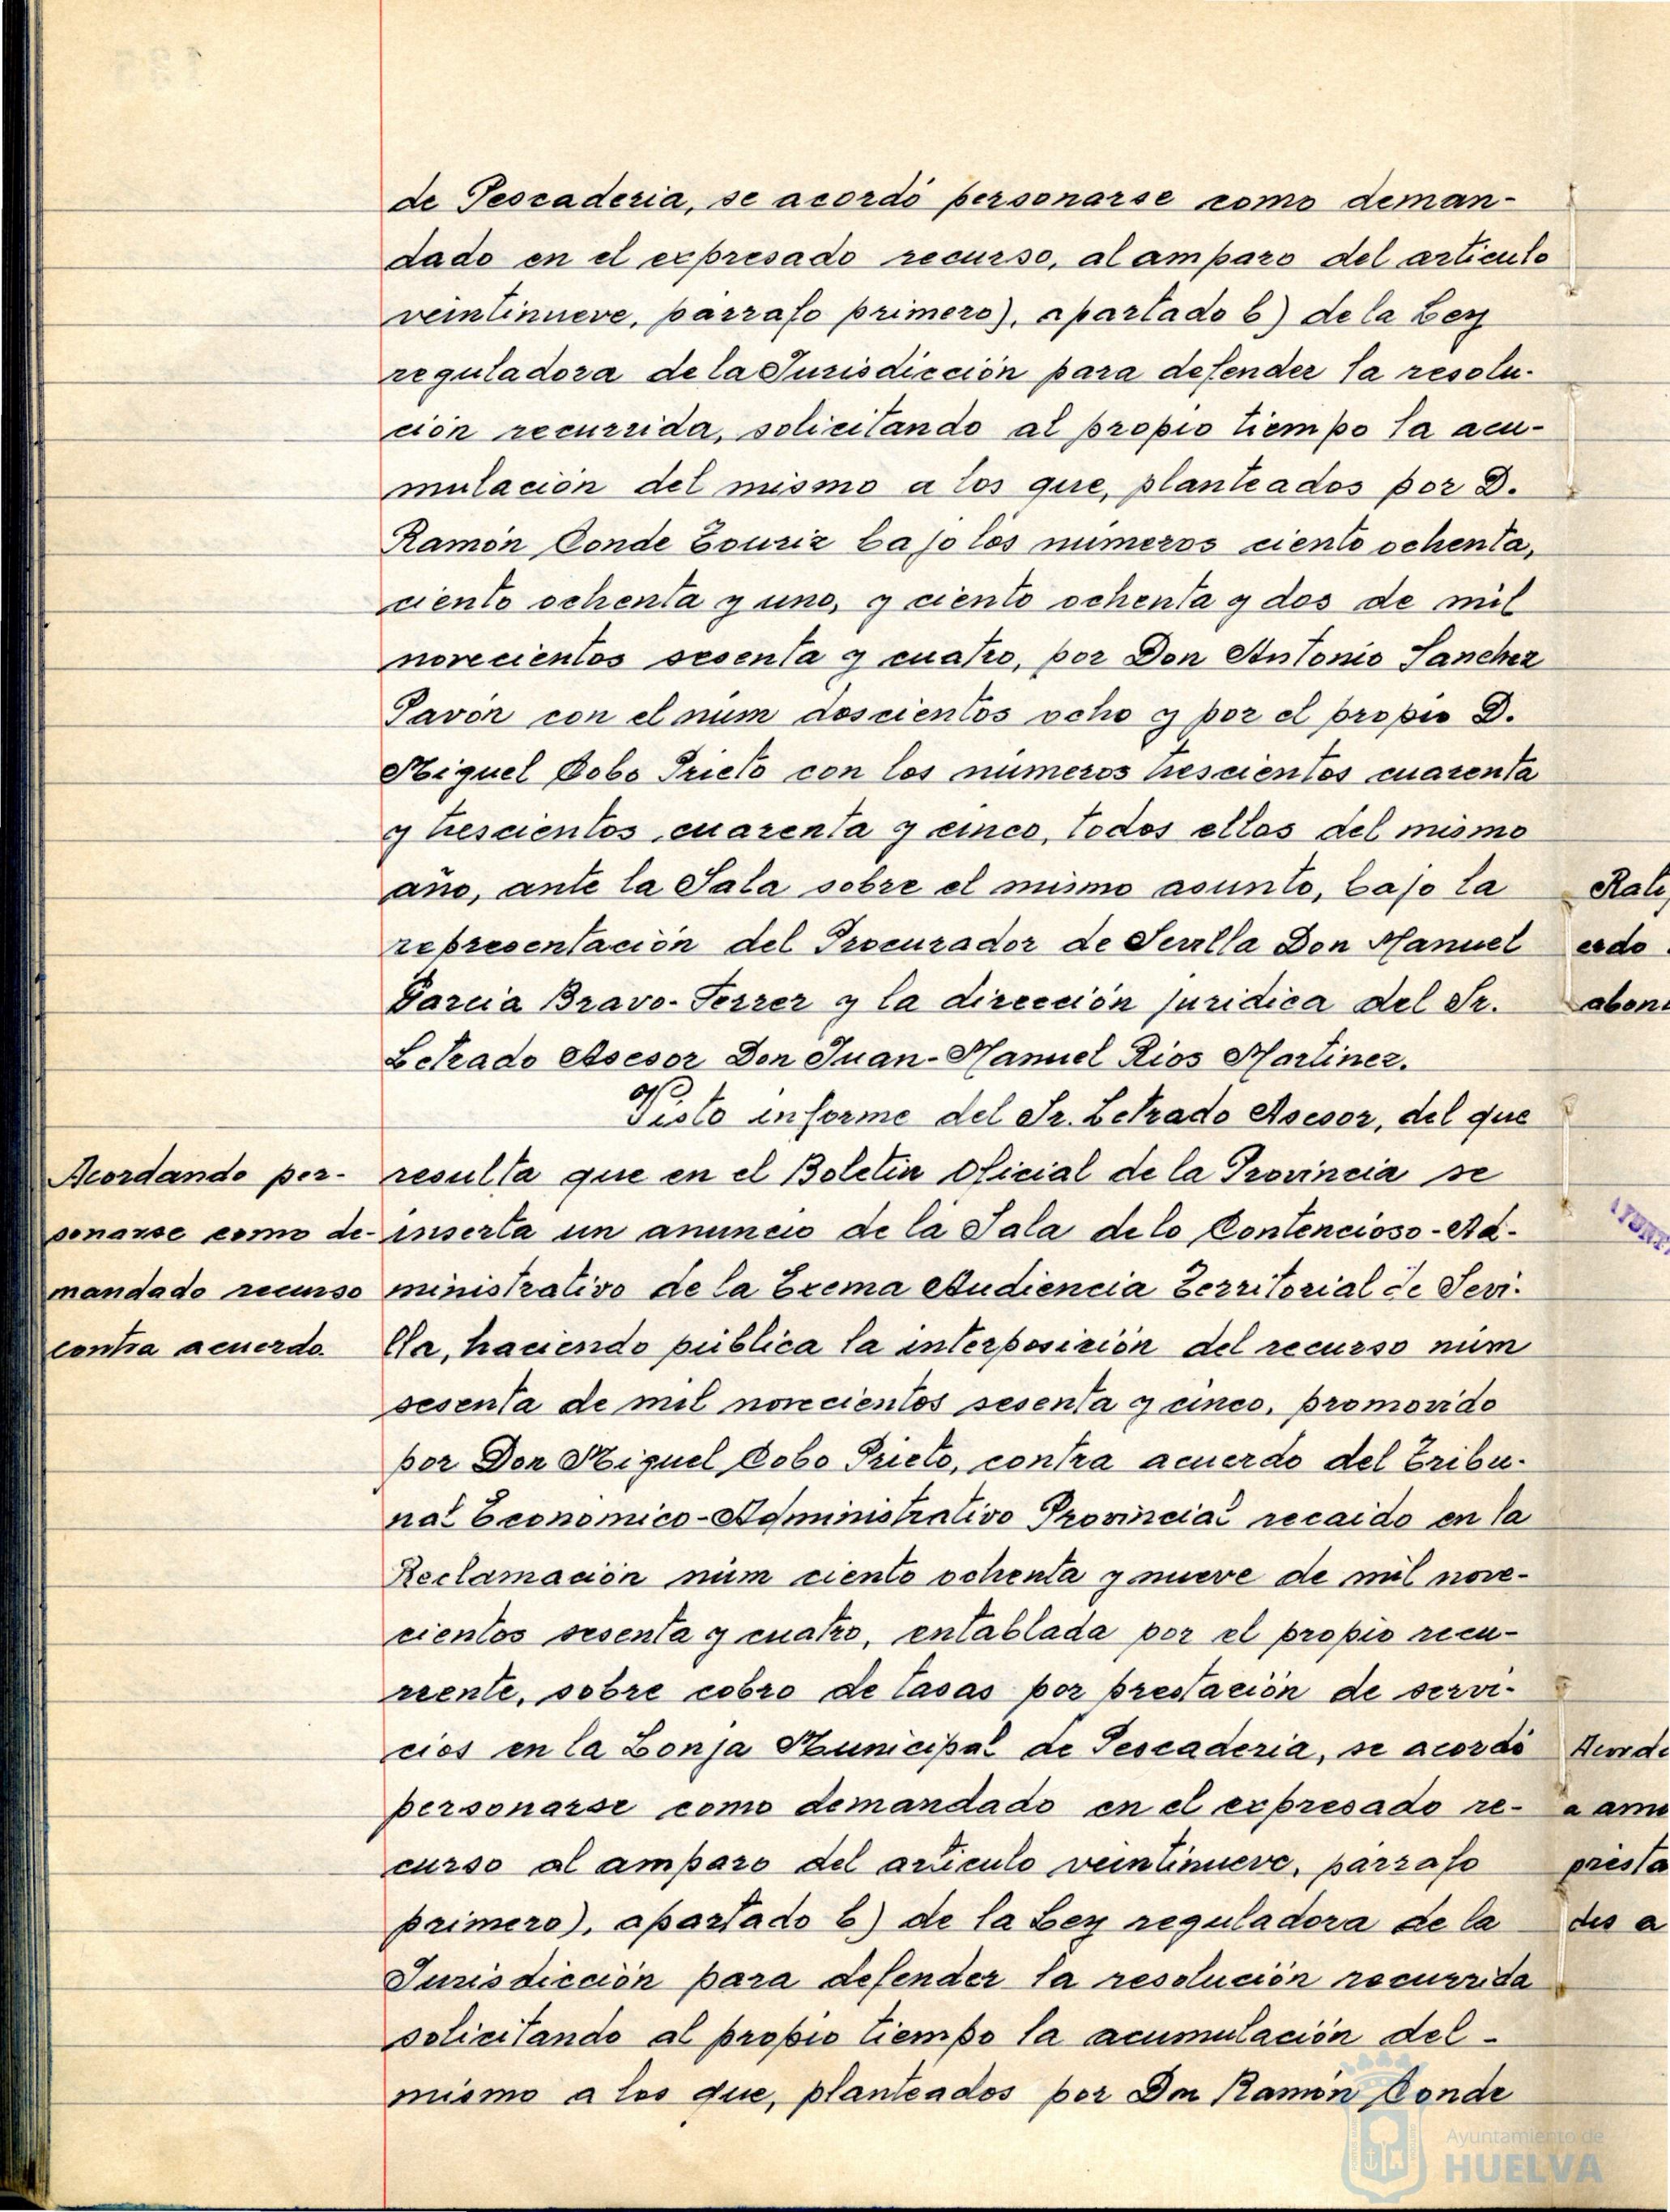 de Pescaderia, se acordó personarse como deman-
dado en el expresado recurso, al amparo del articulo
veintinueve, párrafo primero), apartado b) de la Ley
reguladora de la Jurisdicción para defender la resolu-
ción recurrida, solicitando al propio tiempo la acu-
mulación del mismo a los que, planteados por D.
Ramón Conde Touriz bajo los números ciento ochenta,
ciento ochenta y uno, y ciento ochenta y dos de mil
novecientos sesenta y cuatro, por Don Antonio Sanchez
Pavón con el núm doscientos ocho y por el propio D.
Miguel Cobo Prieto con los números trescientos cuarenta
y trescientos cuarenta y cinco, todos ellos del mismo
año, ante la Sala sobre el mismo asunto, bajo la
representación del Procurador de Sevilla Don Manuel
Garcia Bravo-Ferrer y la dirección juridica del Sr.
Letrado Asesor Don Juan-Manuel Rios Martinez.
Visto informe del Sr. Letrado Asesor, del que
Acordando per-
sonarse como de-
mandado recurso
contra acuerdo.
resulta que en el Boletin Oficial de la Provincia se
inserta un anuncio de la Sala de lo Contencioso-Ad-
ministrativo de la Excma Audiencia Territorial de Sevi-
lla, haciendo pública la interposición del recurso núm
sesenta de mil novecientos sesenta y cinco, promovido
por Don Miguel Cobo Prieto, contra acuerdo del Tribu-
nal Económico-Administrativo Provincial recaido en la
Reclamación núm ciento ochenta y nueve de mil nove-
cientos sesenta y cuatro, entablada por el propio recu-
rrente, sobre cobro de tasas por prestación de servi-
cios en la Lonja Municipal de Pescaderia, se acordó
personarse como demandado en el expresado re-
curso al amparo del articulo veintinueve, párrafo
primero), apartado b) de la Ley reguladora de la
Jurisdicción para defender la resolución recurrida
solicitando al propio tiempo la acumulación del -
mismo a los que, planteados por Don Ramón Conde
Ayuntamiento de
HUELVA